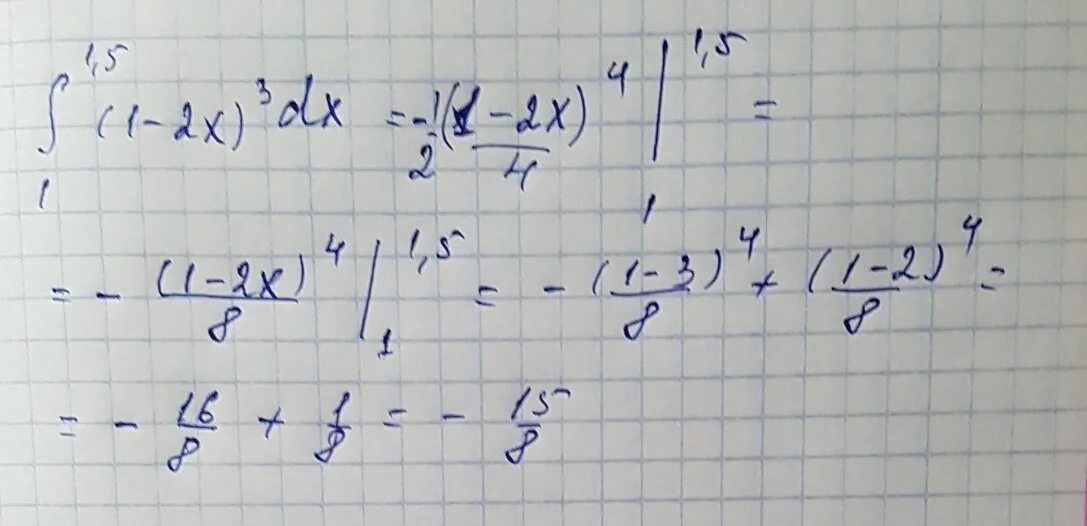 ∫₁^{1,5} (1-2x)³dx = -1/2 (1-2x)⁴/4 |₁^{1,5} =
= - (1-2x)⁴/8 |₁^{1,5} = - (1-3)⁴/8 + (1-2)⁴/8 =
= - 16/8 + 1/8 = - 15/8